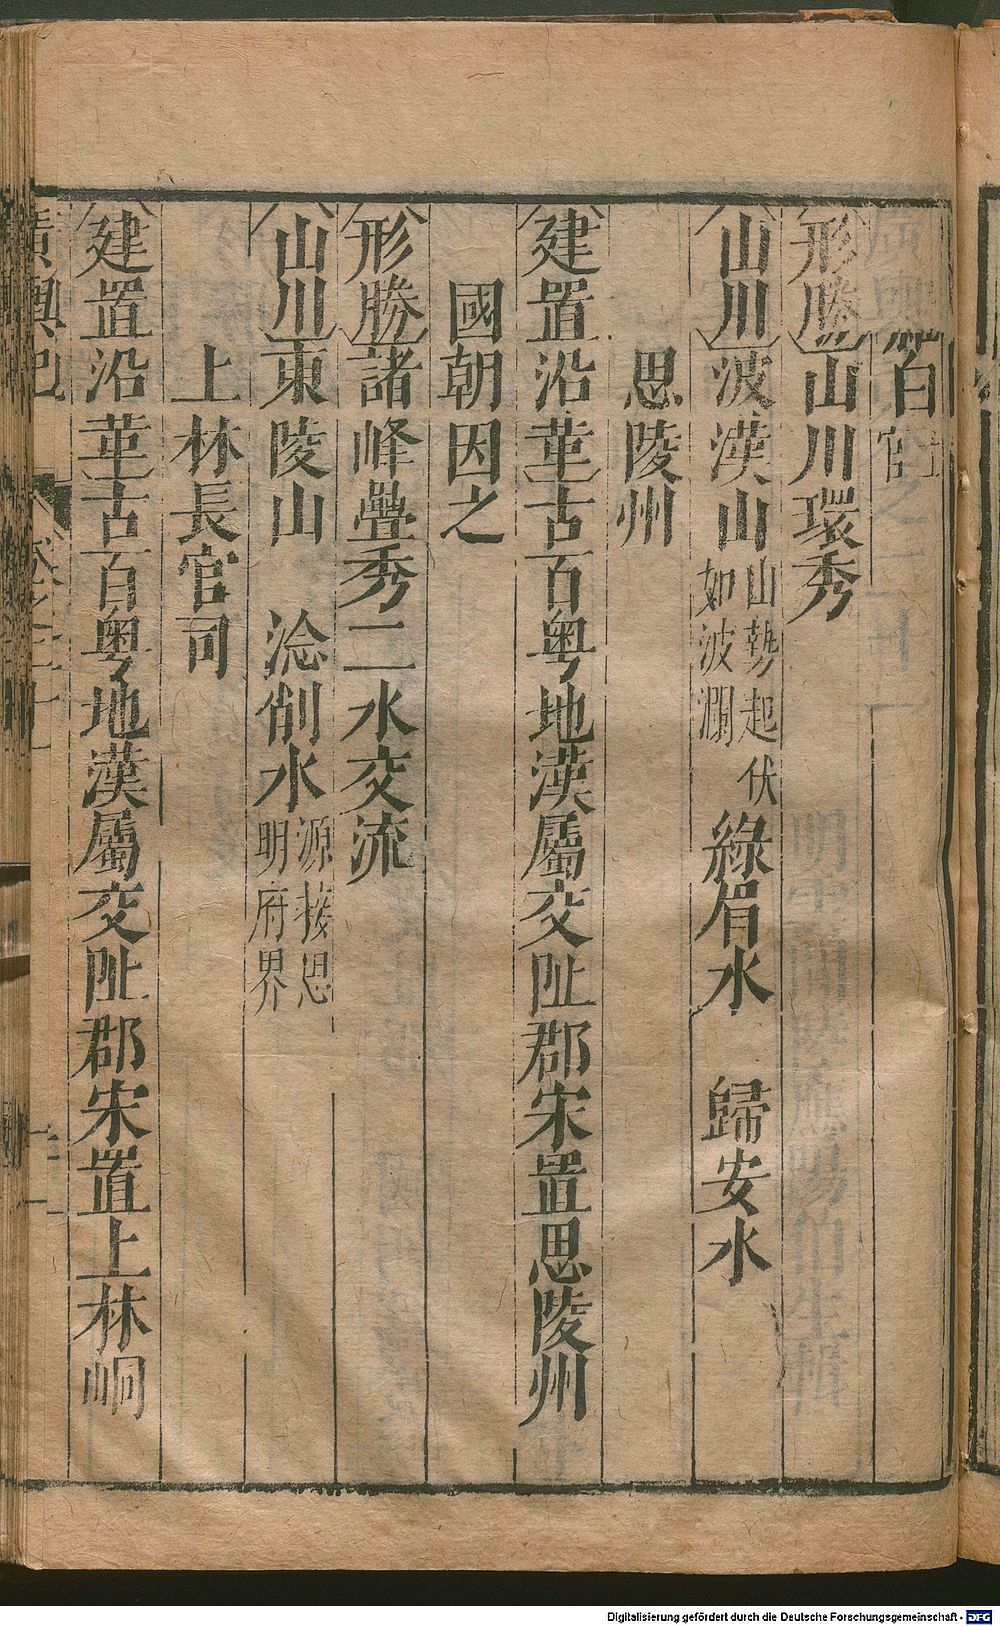 百官
形勝山川環秀
山川波漢山山勢起伏如波瀾綠眉水歸安水
思陵州
建置沿革古百粤地漢屬交趾郡宋置思陵州
國朝因之
形勝諸峰疊秀二水交流
山川東陵山淰削水源接思明府界
上林長官司
建置沿革古百粤地漢屬交趾郡宋置上林峒
廣輿記
Digitalisierung gefördert durch die Deutsche Forschungsgemeinschaft - DFG